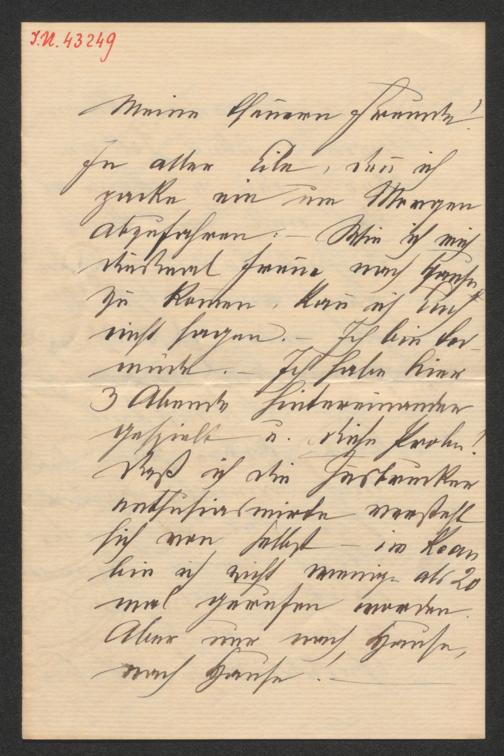 I.N. 43249
Meine theuern Freunde!
In aller Eile, den̄ ich
packe ein um Morgen
abzufahren. – Wie ich mich
diesmal freue nach Hause
zu kom̄en, kan̄ ich Euch
nicht sagen. – Ich bin so
müde. – Ich habe hier
3 Abende hintereinander
gespielt u. diese Proben!
Daß ich die Insbrucker
enthusiasmirte versteht
sich von selbst – im Kean
bin ich nicht weniger als 20
mal gerufen worden.
Aber nur nach Hause,
nach Hause! –